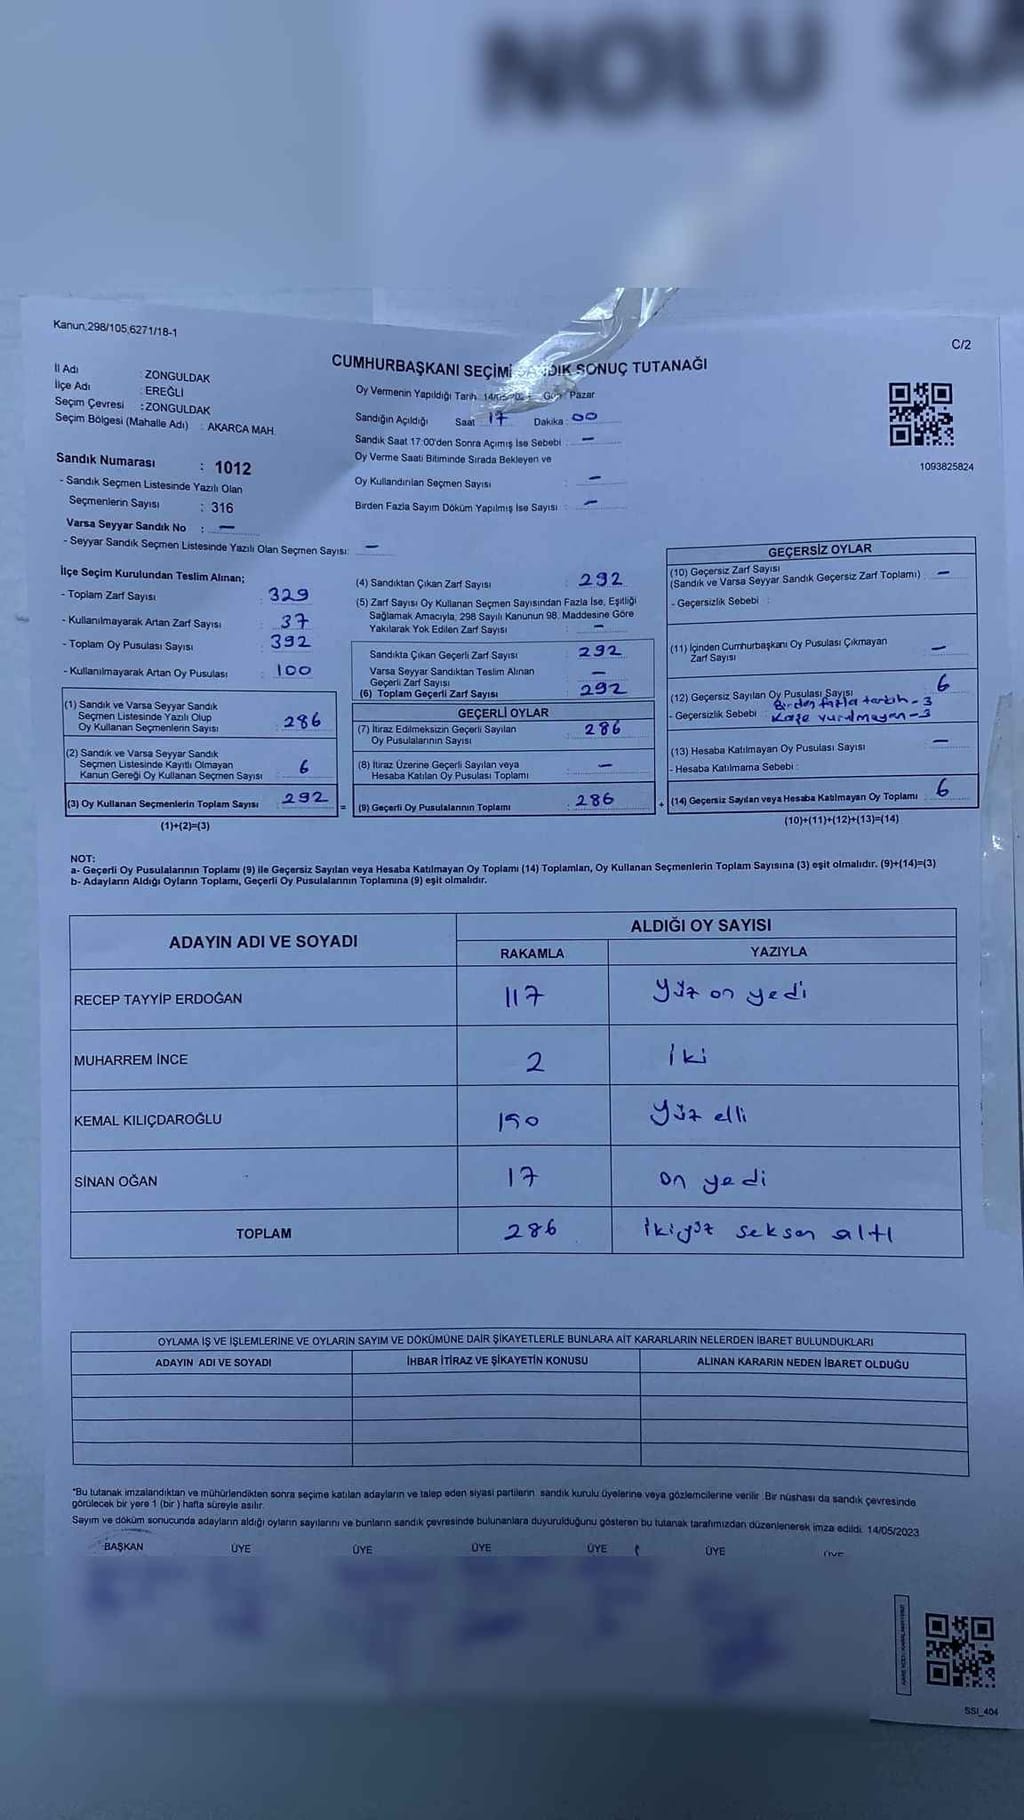 NOLU SA
Kanun,298/105,6271/18-1
C/2
CUMHURBAŞKANI SEÇİMİ SANDIK SONUÇ TUTANAĞI
İl Adı : ZONGULDAK
İlçe Adı : EREĞLİ
Seçim Çevresi : ZONGULDAK
Seçim Bölgesi (Mahalle Adı) : AKARCA MAH.
Sandık Numarası : 1012
- Sandık Seçmen Listesinde Yazılı Olan
Seçmenlerin Sayısı : 316
Varsa Seyyar Sandık No : -
- Seyyar Sandık Seçmen Listesinde Yazılı Olan Seçmen Sayısı: -
Oy Vermenin Yapıldığı Tarih Gün Pazar
Sandığın Açıldığı Saat 17 Dakika : 00
Sandık Saat 17:00'den Sonra Açımış İse Sebebi : -
Oy Verme Saati Bitiminde Sırada Bekleyen ve
Oy Kullandırılan Seçmen Sayısı : -
Birden Fazla Sayım Döküm Yapılmış İse Sayısı : -
1093825824
İlçe Seçim Kurulundan Teslim Alınan;
- Toplam Zarf Sayısı : 329
- Kullanılmayarak Artan Zarf Sayısı : 37
- Toplam Oy Pusulası Sayısı : 392
- Kullanılmayarak Artan Oy Pusulası : 100
(1) Sandık ve Varsa Seyyar Sandık
Seçmen Listesinde Yazılı Olup
Oy Kullanan Seçmenlerin Sayısı : 286
(2) Sandık ve Varsa Seyyar Sandık
Seçmen Listesinde Kayıtlı Olmayan
Kanun Gereği Oy Kullanan Seçmen Sayısı : 6
(3) Oy Kullanan Seçmenlerin Toplam Sayısı : 292
(1)+(2)=(3)
(4) Sandıktan Çıkan Zarf Sayısı : 292
(5) Zarf Sayısı Oy Kullanan Seçmen Sayısından Fazla İse, Eşitliği
Sağlamak Amacıyla, 298 Sayılı Kanunun 98. Maddesine Göre
Yakılarak Yok Edilen Zarf Sayısı : -
Sandıkta Çıkan Geçerli Zarf Sayısı : 292
Varsa Seyyar Sandıktan Teslim Alınan
Geçerli Zarf Sayısı : -
(6) Toplam Geçerli Zarf Sayısı : 292
GEÇERLİ OYLAR
(7) İtiraz Edilmeksizin Geçerli Sayılan
Oy Pusulalarının Sayısı : 286
(8) İtiraz Üzerine Geçerli Sayılan veya
Hesaba Katılan Oy Pusulası Toplamı : -
= (9) Geçerli Oy Pusulalarının Toplamı : 286
GEÇERSİZ OYLAR
(10) Geçersiz Zarf Sayısı
(Sandık ve Varsa Seyyar Sandık Geçersiz Zarf Toplamı) : -
- Geçersizlik Sebebi :
(11) İçinden Cumhurbaşkanı Oy Pusulası Çıkmayan
Zarf Sayısı : -
(12) Geçersiz Sayılan Oy Pusulası Sayısı : 6
- Geçersizlik Sebebi : Birden fazla tercih - 3
Kaşe vurulmayan - 3
(13) Hesaba Katılmayan Oy Pusulası Sayısı : -
- Hesaba Katılmama Sebebi :
+ (14) Geçersiz Sayılan veya Hesaba Katılmayan Oy Toplamı : 6
(10)+(11)+(12)+(13)=(14)
NOT:
a- Geçerli Oy Pusulalarının Toplamı (9) ile Geçersiz Sayılan veya Hesaba Katılmayan Oy Toplamı (14) Toplamları, Oy Kullanan Seçmenlerin Toplam Sayısına (3) eşit olmalıdır. (9)+(14)=(3)
b- Adayların Aldığı Oyların Toplamı, Geçerli Oy Pusulalarının Toplamına (9) eşit olmalıdır.
ADAYIN ADI VE SOYADI
ALDIĞI OY SAYISI
RAKAMLA YAZIYLA
RECEP TAYYİP ERDOĞAN 117 Yüz on yedi
MUHARREM İNCE 2 İki
KEMAL KILIÇDAROĞLU 150 Yüz elli
SİNAN OĞAN 17 on yedi
TOPLAM 286 İkiyüz seksen altı
OYLAMA İŞ VE İŞLEMLERİNE VE OYLARIN SAYIM VE DÖKÜMÜNE DAİR ŞİKAYETLERLE BUNLARA AİT KARARLARIN NELERDEN İBARET BULUNDUKLARI
ADAYIN ADI VE SOYADI İHBAR İTİRAZ VE ŞİKAYETİN KONUSU ALINAN KARARIN NEDEN İBARET OLDUĞU
*Bu tutanak imzalandıktan ve mühürlendikten sonra seçime katılan adayların ve talep eden siyasi partilerin sandık kurulu üyelerine veya gözlemcilerine verilir. Bir nüshası da sandık çevresinde
görülecek bir yere 1 (bir) hafta süreyle asılır.
Sayım ve döküm sonucunda adayların aldığı oyların sayılarını ve bunların sandık çevresinde bulunanlara duyurulduğunu gösteren bu tutanak tarafımızdan düzenlenerek imza edildi. 14/05/2023
BAŞKAN ÜYE ÜYE ÜYE ÜYE ÜYE ÜYE
SSI_404